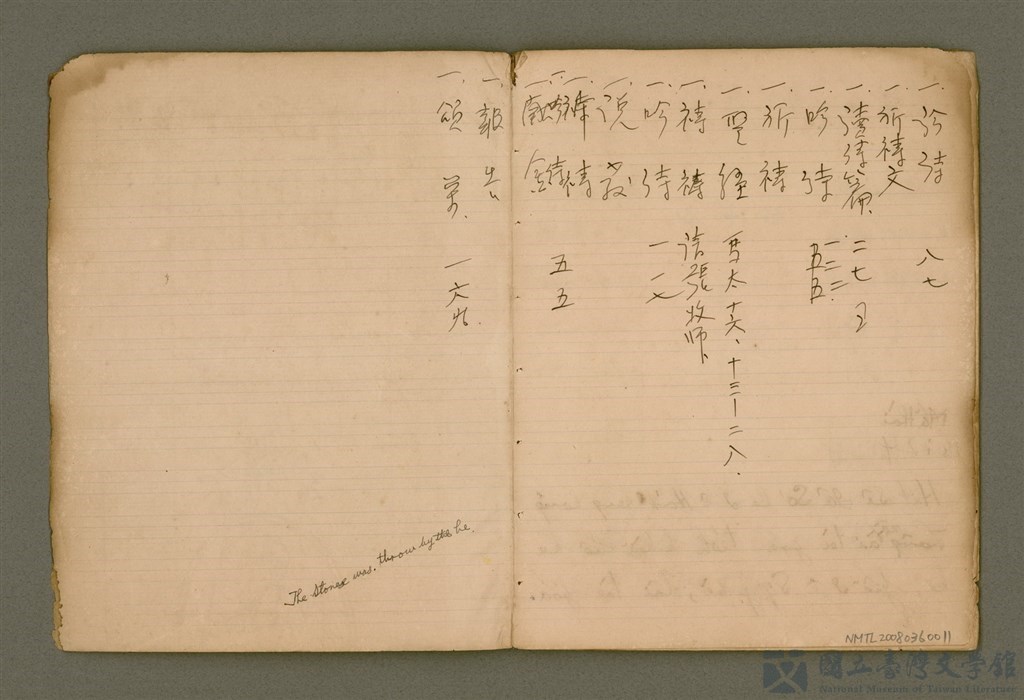 一. 吟詩 八七
一. 祈禱文
一. 讀詩篇. 二七 2
一. 吟詩 一二二 五五.
一. 祈禱
一. 聖經 馬太十六、十三一二八.
一. 禱禱 請張牧師
一. 吟詩 一一七
一. 說教
一. 祈禱
一. 吟詩 五五
一. 獻金
一. 報告
一. 頌榮. 一六九.
The stones was. throw by the he.
NMTL20080360011
國立臺灣文學館
National Museum of Taiwan Literature